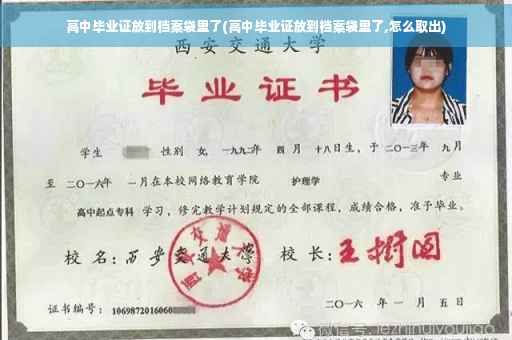 高中毕业证放到档案袋里了(高中毕业证放到档案袋里了,怎么取出)
西安交通大学
毕业证书
学生 性别 女, 一九九二年 四月 十八日生, 于 二〇一三年 九月
至 二〇一六年 一月在本校网络教育学院 护理学 专业
高中起点专科 学习, 修完教学计划规定的全部课程, 成绩合格, 准予毕业。
校名: 西安交通大学 校长: 王树国
西安交通大学
二〇一六年 一月 五日
证书编号: 1069872016060
微信号: jezhihuiyoujiao